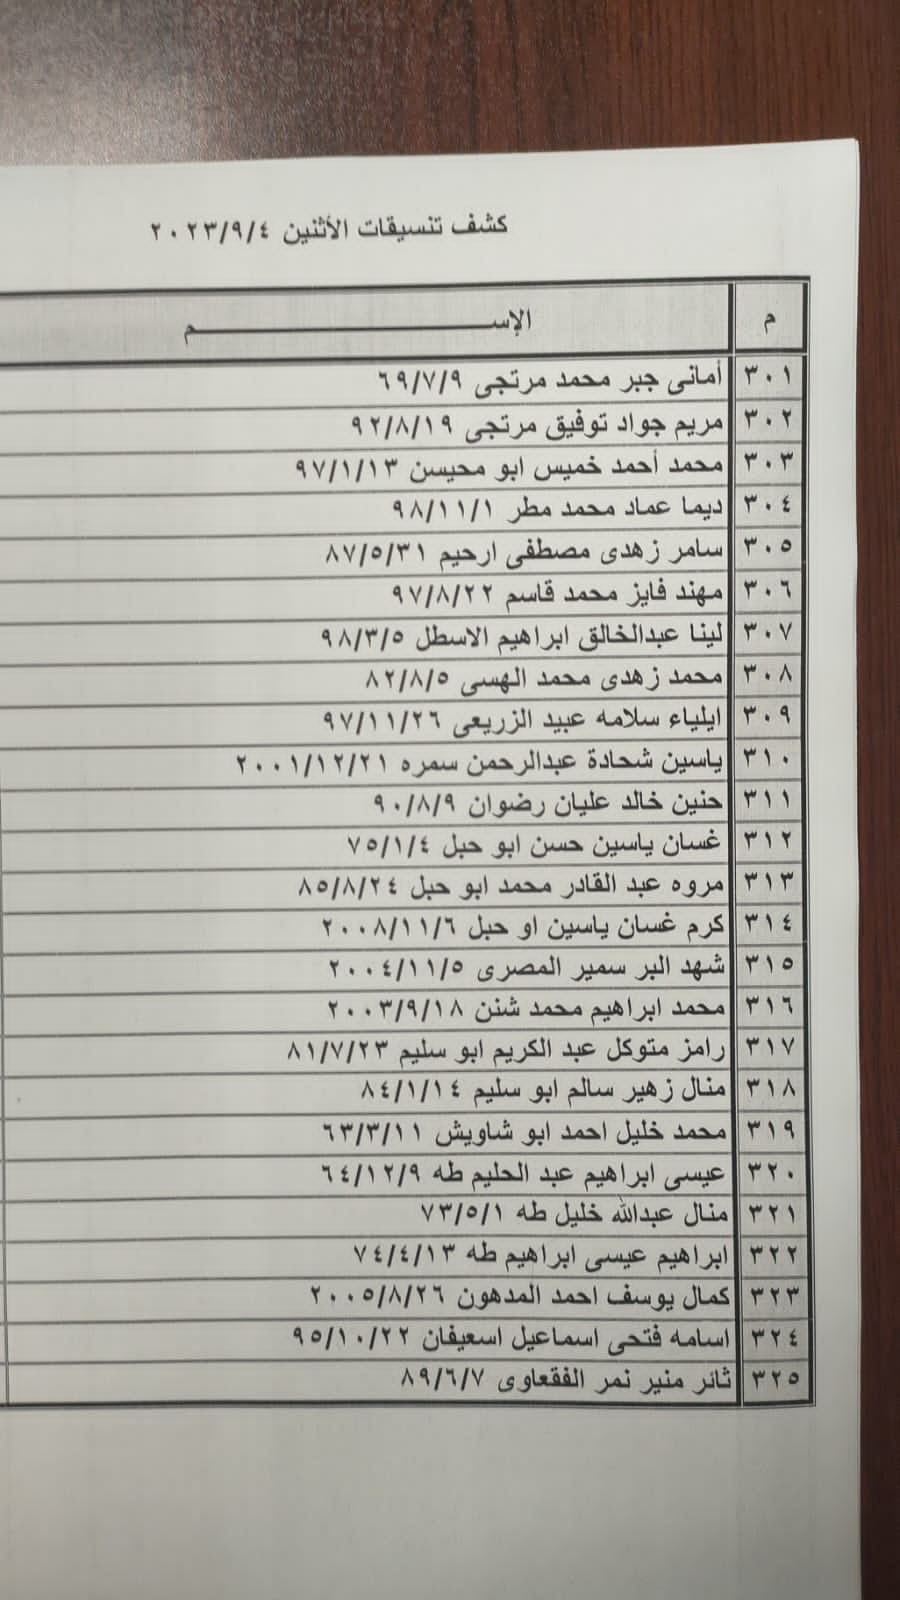 كشف تنسيقات الأثنين ٢٠٢٣/٩/٤
م الإســـــــــم
٣٠١ أمانى جبر محمد مرتجى ٦٩/٧/٩
٣٠٢ مريم جواد توفيق مرتجى ٩٢/٨/١٩
٣٠٣ محمد أحمد خميس ابو محيسن ٩٧/١/١٣
٣٠٤ ديما عماد محمد مطر ٩٨/١١/١
٣٠٥ سامر زهدى مصطفى ارحيم ٨٧/٥/٣١
٣٠٦ مهند فايز محمد قاسم ٩٧/٨/٢٢
٣٠٧ لينا عبدالخالق ابراهيم الاسطل ٩٨/٣/٥
٣٠٨ محمد زهدى محمد الهسى ٨٢/٨/٥
٣٠٩ ايلياء سلامه عبيد الزريعى ٩٧/١١/٢٦
٣١٠ ياسين شحادة عبدالرحمن سمره ٢٠٠١/١٢/٢١
٣١١ حنين خالد عليان رضوان ٩٠/٨/٩
٣١٢ غسان ياسين حسن ابو حبل ٧٥/١/٤
٣١٣ مروه عبد القادر محمد ابو حبل ٨٥/٨/٢٤
٣١٤ كرم غسان ياسين او حبل ٢٠٠٨/١١/٦
٣١٥ شهد البر سمير المصرى ٢٠٠٤/١١/٥
٣١٦ محمد ابراهيم محمد شنن ٢٠٠٣/٩/١٨
٣١٧ رامز متوكل عبد الكريم ابو سليم ٨١/٧/٢٣
٣١٨ منال زهير سالم ابو سليم ٨٤/١/١٤
٣١٩ محمد خليل احمد ابو شاويش ٦٣/٣/١١
٣٢٠ عيسى ابراهيم عبد الحليم طه ٦٤/١٢/٩
٣٢١ منال عبدالله خليل طه ٧٣/٥/١
٣٢٢ ابراهيم عيسى ابراهيم طه ٧٤/٤/١٣
٣٢٣ كمال يوسف احمد المدهون ٢٠٠٥/٨/٢٦
٣٢٤ اسامه فتحى اسماعيل اسعيفان ٩٥/١٠/٢٢
٣٢٥ ثائر منير نمر الفقعاوى ٨٩/٦/٧